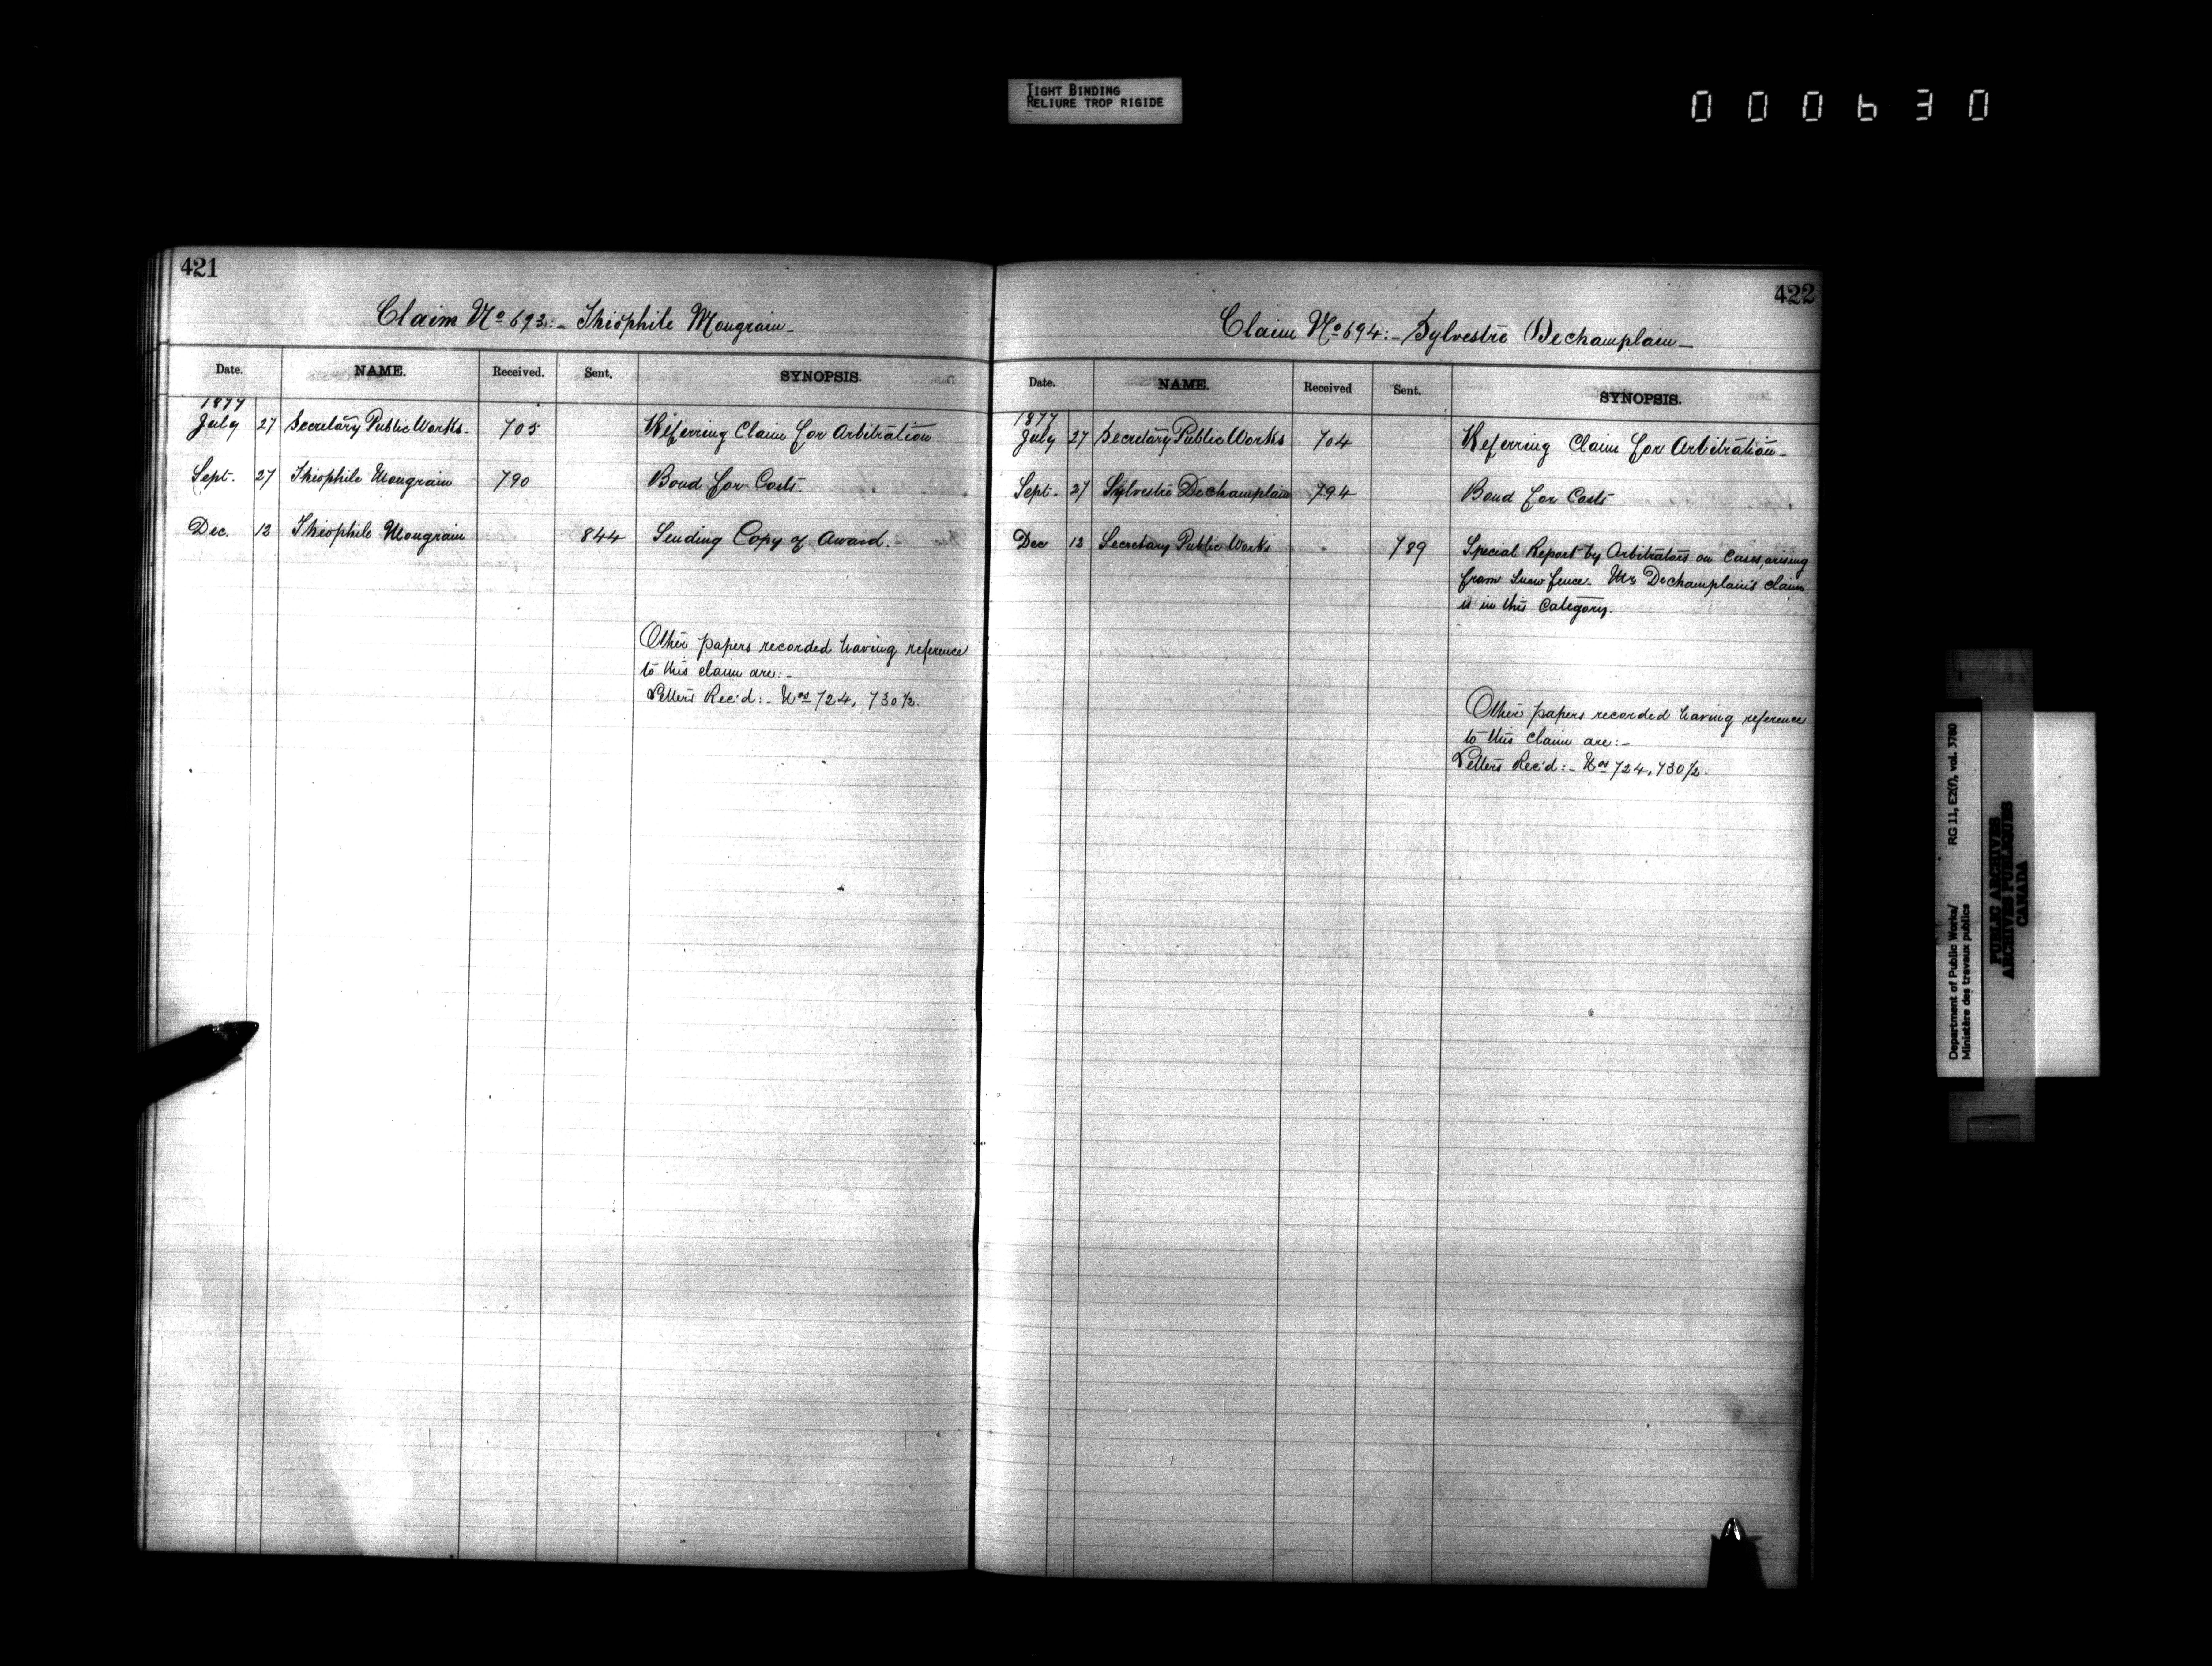 TIGHT BINDING
RELIURE TROP RIGIDE
000630
421
Claim No 693:- Théophile Mongrain-
Date. NAME. Received. Sent. SYNOPSIS.
1877
July 27 Secretary Public Works- 705 Referring Claim for Arbitration
Sept. 27 Théophile Mongrain 790 Bond for Costs.
Dec. 13 Théophile Mongrain 844 Sending Copy of Award.
Other papers recorded having reference
to this claim are:-
Letters Rec'd:- Nos 724, 730½.
422
Claim No 694:- Sylvestre Dechamplain-
Date. NAME. Received Sent. SYNOPSIS.
1877
July 27 Secretary Public Works 704 Referring Claim for Arbitration-
Sept. 27 Sylvestre Dechamplain 794 Bond for Costs
Dec 13 Secretary Public Works 789 Special Report by Arbitrators on Cases, arising
from Snow fence. Mr Dechamplain's claim
is in this Category.
Other papers recorded having reference
to this claim are:-
Letters Rec'd:- Nos 724, 730½.
Department of Public Works/ RG 11, E2(f), vol. 3780
Ministère des travaux publics
PUBLIC ARCHIVES
ARCHIVES PUBLIQUES
CANADA